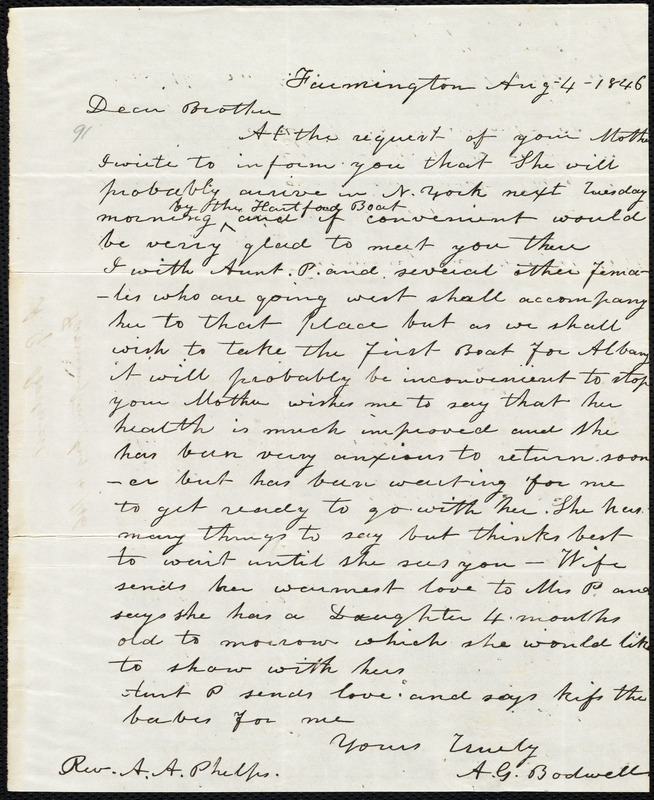 Farmington Aug 4 - 1846
Dear Brother
91
At the request of your Mother
I write to inform you that She will
probably arrive in N. York next Tuesday
by the Hartford Boat
morning ^ and if convenient would
be verry glad to meet you there
I with Aunt. P. and several other fema-
-les who are going west shall accompany
her to that place but as we shall
wish to take the first Boat for Albany
it will probably be inconvenient to stop
your Mother wishes me to say that her
health is much improved and she
has been very anxious to return soon-
-er but has been waiting for me
to get ready to go with her. She has
many things to say but thinks best
to wait until she sees you - Wife
sends her warmest love to Mrs P. and
says she has a Daughter 4. months
old to morrow which she would like
to show with hers
Aunt P sends love and says kiss the
babes for me
Yours Truely
Rev. A. A. Phelps. A. G. Bodwell